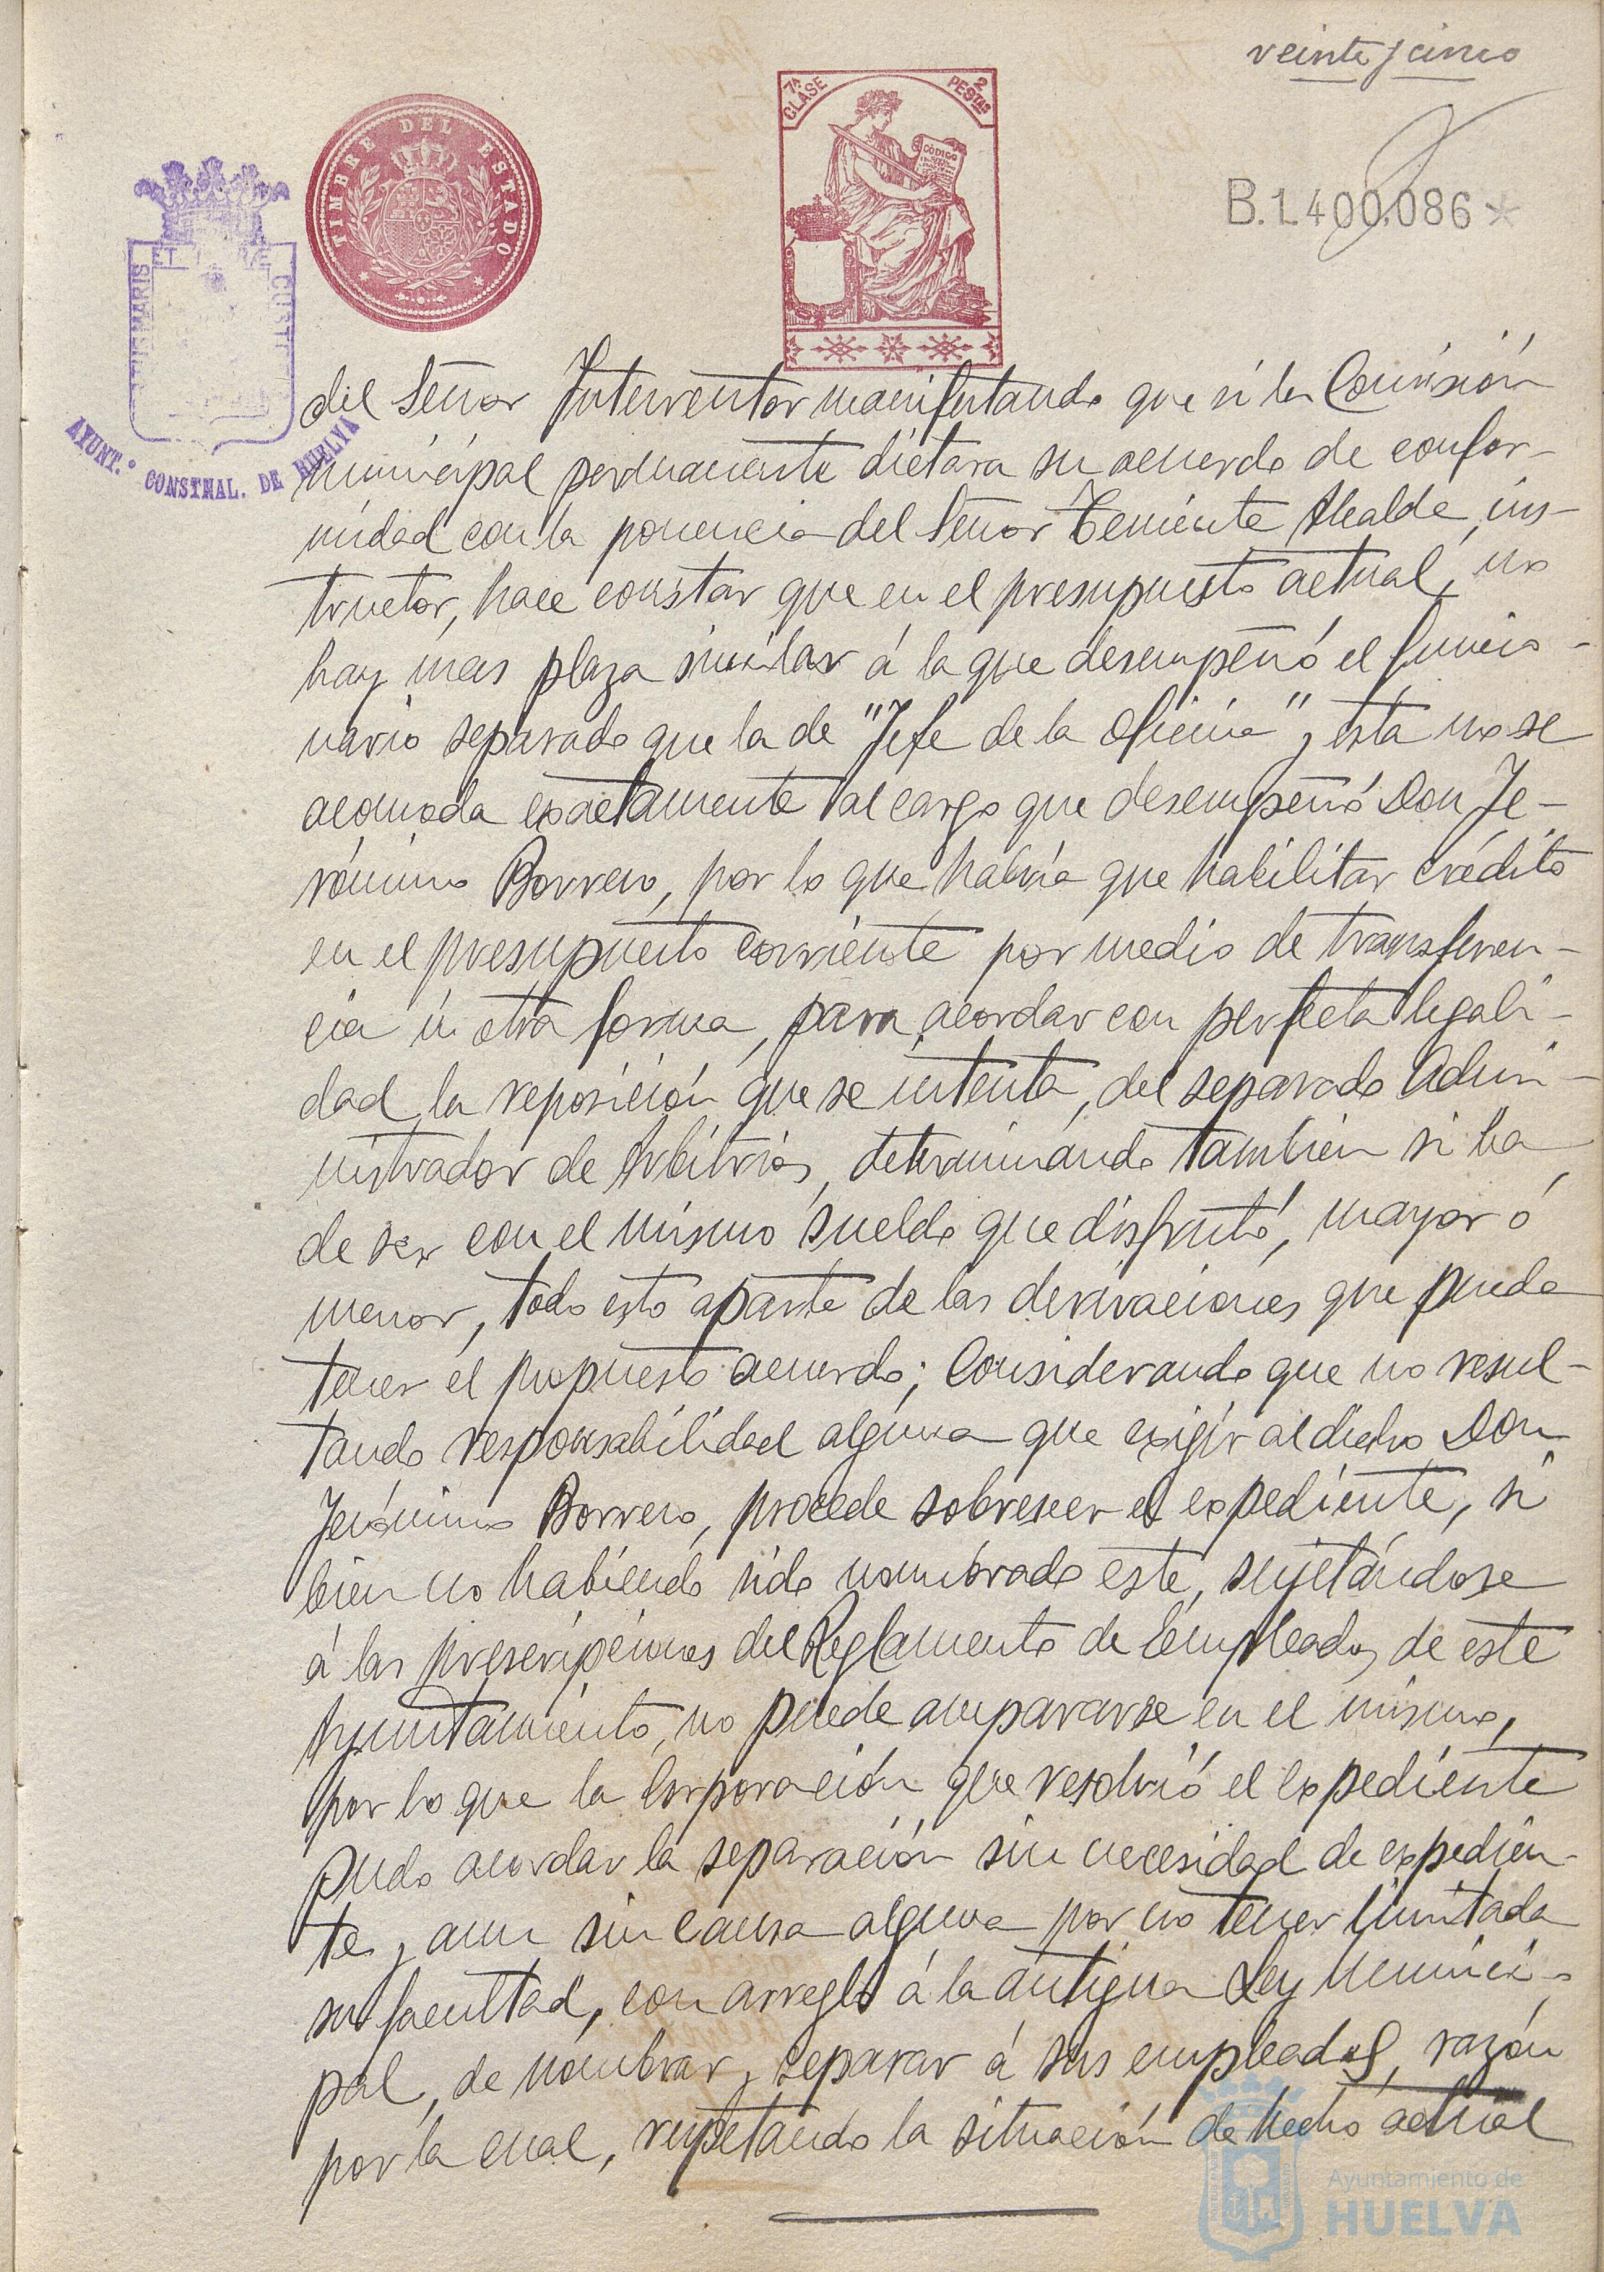 veinte y cinco
7ª CLASE
2 PESTAS
CÓDIGO
TIMBRE DEL ESTADO
B.1.400.086*
AYUNT.º CONSTNAL. DE HUELVA
del Señor Interventor manifestando que si la Comisión
municipal permanente dictara su acuerdo de confor-
midad con la ponencia del Señor Teniente Alcalde, ins-
tructor, hace constar que en el presupuesto actual, no
hay mas plaza similar á la que desempeñó el funcio-
nario separado que la de "Jefe de la Oficina" y esta no se
acomoda exactamente al cargo que desempeñó Don Je-
rónimo Borrero, por lo que habría que habilitar crédito
en el presupuesto corriente por medio de transferen-
cia ú otra forma, para acordar con perfecta legali-
dad la reposición que se intenta, del separado Admi-
nistrador de Arbitrios, determinando tambien si ha
de ser con el mismo sueldo que disfrutó, mayor ó
menor, todo esto aparte de las derivaciones que pueda
tener el propuesto acuerdo; Considerando que no resul-
tando responsabilidad alguna que exigir al dicho Don
Jerónimo Borrero, procede sobreseer el expediente, si
bien no habiendo sido nombrado este, sujetándose
á las prescripciones del Reglamento de Empleados de este
Ayuntamiento, no puede ampararse en el mismo,
por lo que la Corporación que resolvió el expediente
pudo acordar la separación sin necesidad de expedien-
te y aun sin causa alguna por no tener limitada
su facultad, con arreglo á la antigua Ley Munici-
pal, de nombrar y separar á sus empleados, razón
por la cual, respetando la situación de hecho actual
Ayuntamiento de
HUELVA